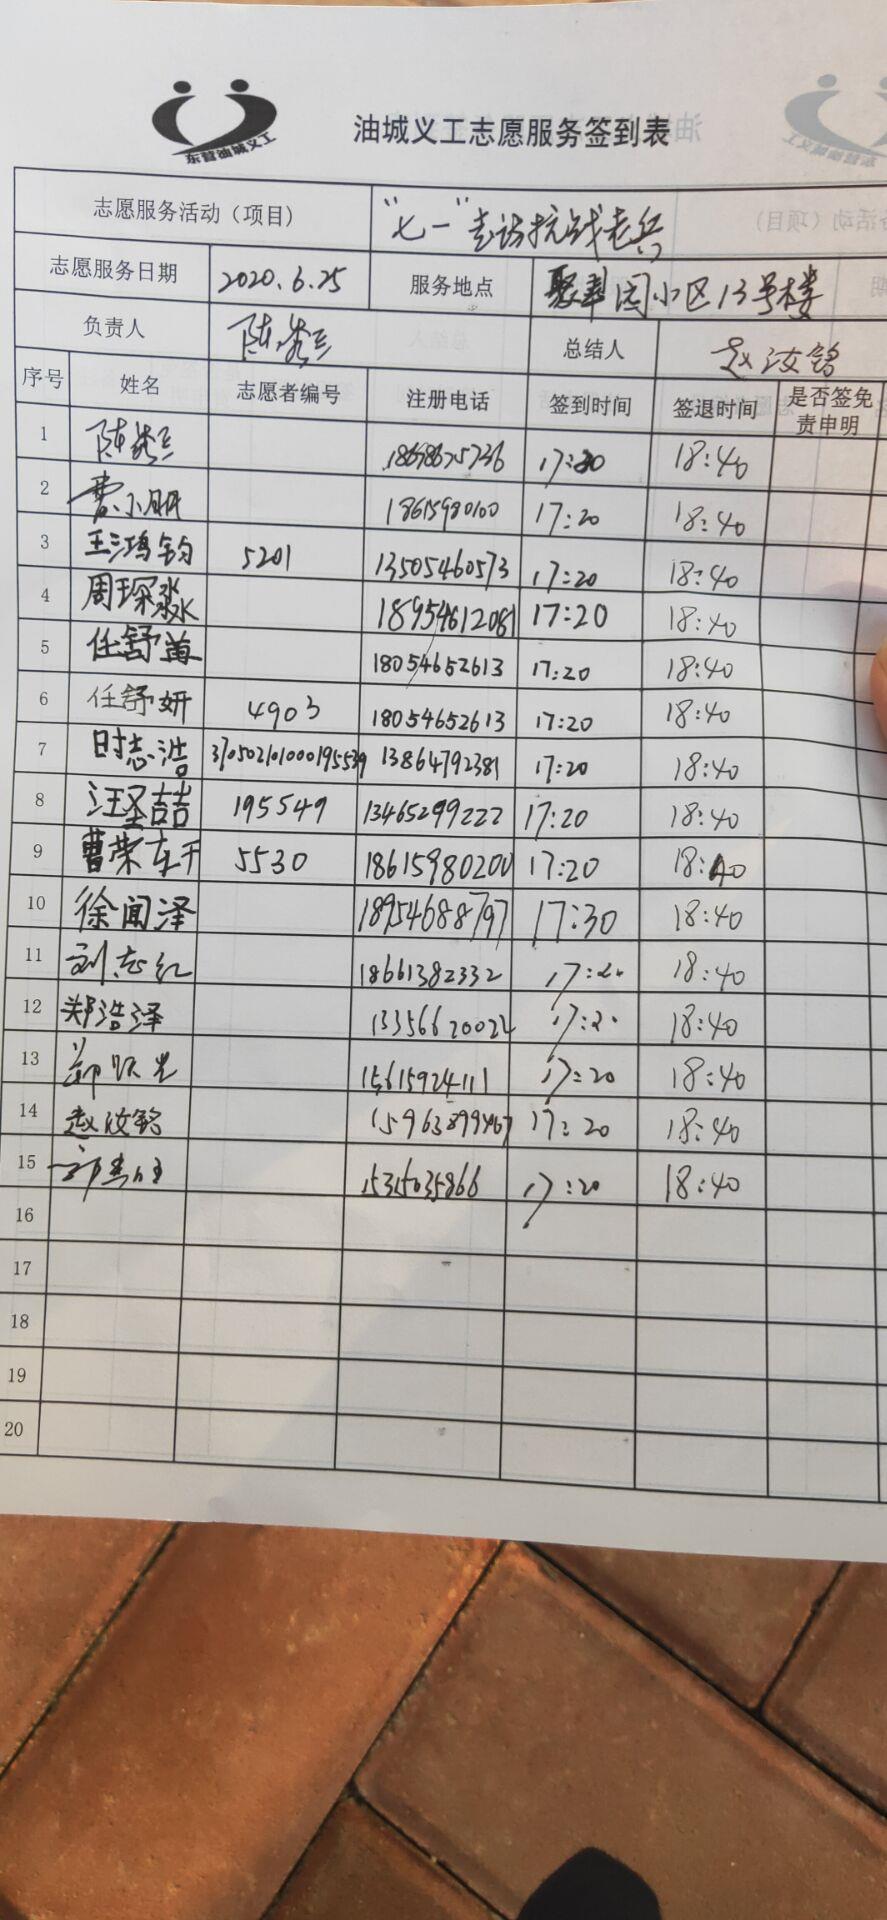 东营油城义工
油城义工志愿服务签到表
志愿服务活动（项目） "七一"走访抗战老兵
志愿服务日期 2020.6.25 服务地点 聚翠园小区13号楼
负责人 陈 总结人 赵汝铭
序号 姓名 志愿者编号 注册电话 签到时间 签退时间 是否签免责申明
1 陈 18:40
2 曹小明 18615980100 17:20 18:40
3 王鸿钧 5201 13505460573 17:20 18:40
4 周琛淼 18954612081 17:20 18:40
5 任舒 18054652613 17:20 18:40
6 任舒妍 4903 18054652613 17:20 18:40
7 时志浩 13864792381 17:20 18:40
8 汪圣喆 195549 13465299222 17:20 18:40
9 曹荣 5530 18615980200 17:20 18:40
10 徐闻泽 18954688797 17:30 18:40
11 刘志红 18661382332 18:40
12 郑浩泽 18:40
13 15615924111 17:20 18:40
14 赵汝铭 17:20 18:40
15 17:20 18:40
16
17
18
19
20